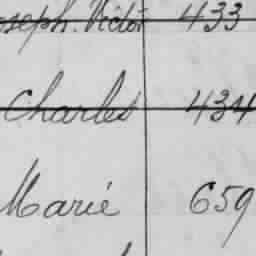 Joseph. Victor 433
Charles 434
Marie 659